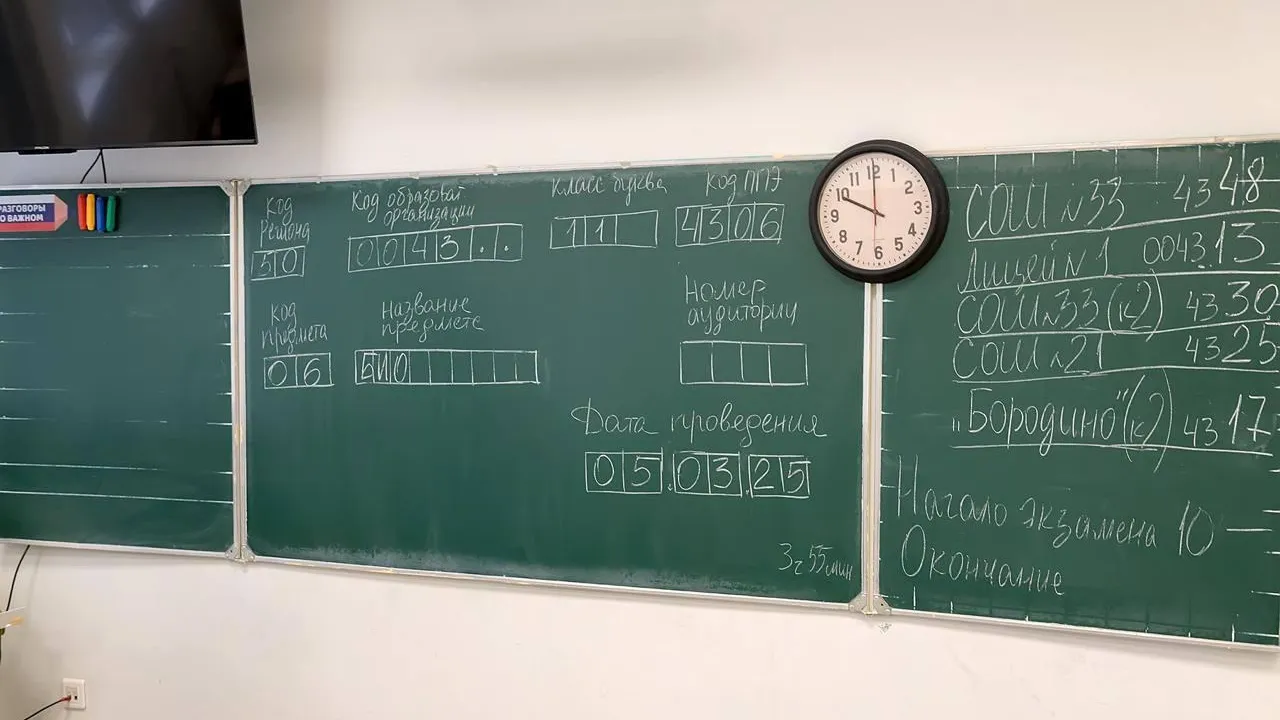 РАЗГОВОРЫ
О ВАЖНОМ
Код
Региона
50
Код образоват
организации
0043..
Класс буква
11
Код ППЭ
4306
Код
предмета
06
Название
предмета
БИО
Номер
аудитории
Дата проведения
05.03.25
3ч 55мин
12 1 2 3 4 5 6 7 8 9 10 11
СОШ №33 4348
Лицей №1 004313
СОШ №33 (к2) 4330
СОШ №21 4325
„Бородино" (к2) 4317
Начало экзамена 10 —
Окончание